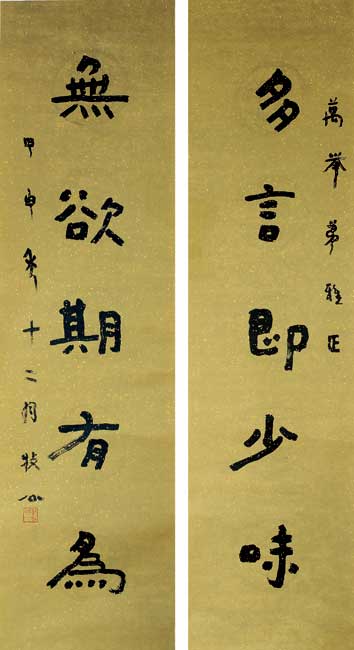 萬举弟雅正
多言即少味
無欲期有為
甲申年十二月牧